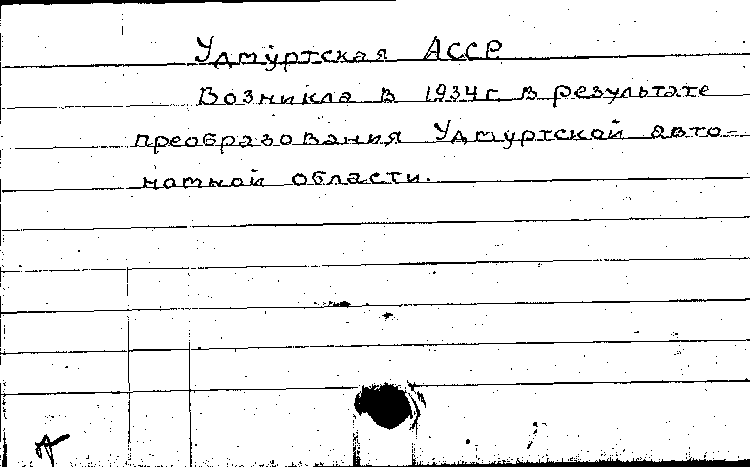 Удмуртская АССР
Возникла в 1934 г. в результате
преобразования Удмуртской авто-
номной области.